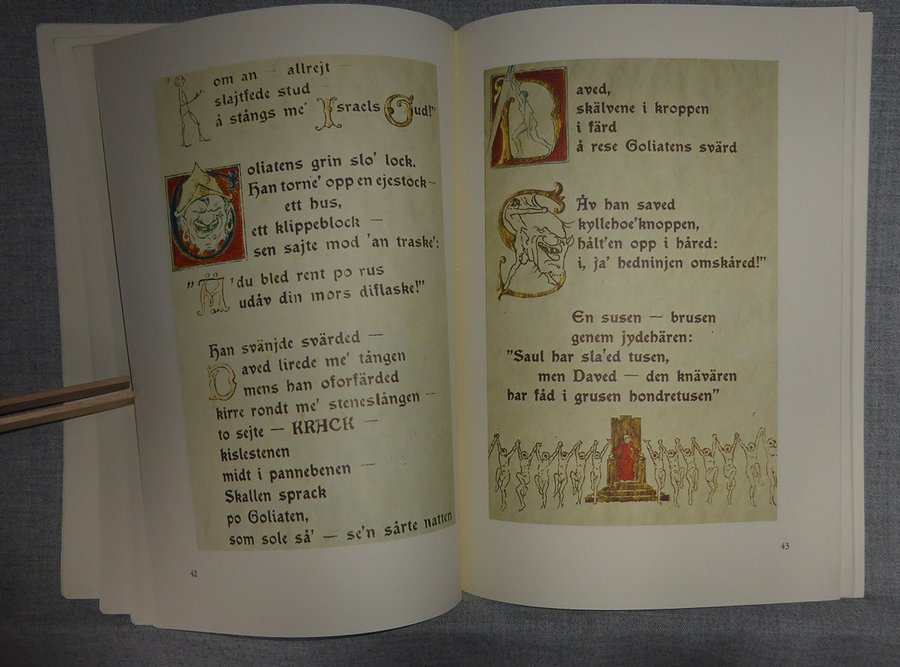 Kom an — allrejt —
slajtfede stud —
å stångs me' Israels Gud!"
Goliatens grin slo' lock.
Han torne' opp en ejestock —
ett hus,
ett klippeblock —
sen sajte mod 'an traske':
"Ä 'du bled rent po rus
udåv din mors diflaske!"
Han svänjde svärded —
Daved lirede me' tången
mens han oforfärded
kirre rondt me' steneslången —
to sejte — KRACK —
kislestenen
midt i pannebenen —
Skallen sprack
po Goliaten,
som sole så' — se'n sårte natten
42
Daved,
skälvene i kroppen
i färd
å rese Goliatens svärd
Åv han saved
kyllehoe'knoppen,
hålt'en opp i håred:
i, ja' hedninjen omskåred!"
En susen — brusen
genem jydehären:
"Saul har sla'ed tusen,
men Daved — den knävären
har fåd i grusen hondretusen"
43